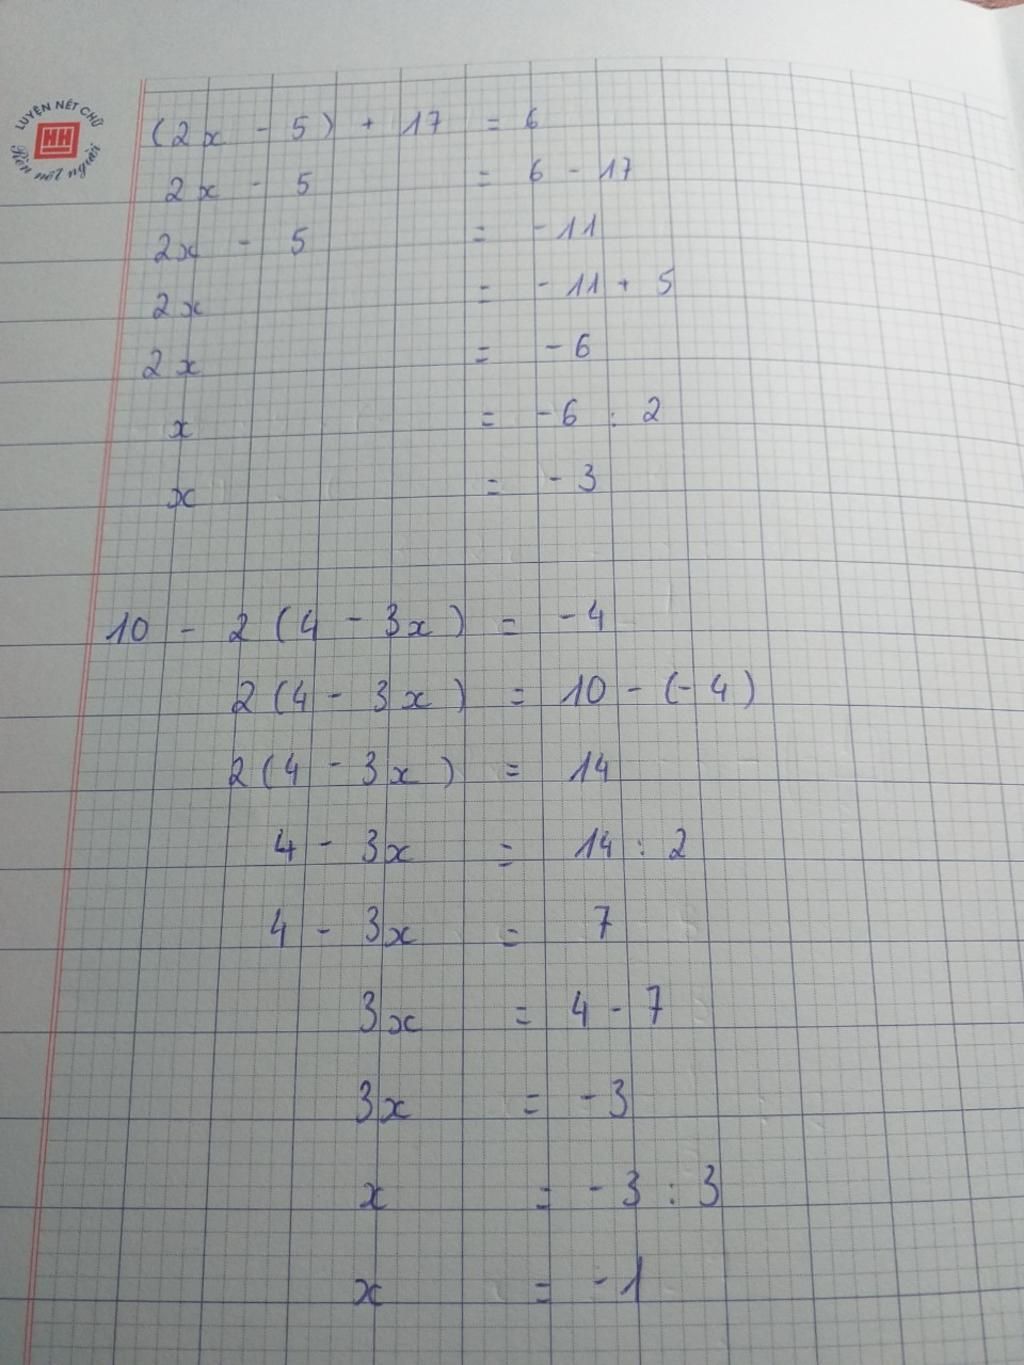 LUYỆN NÉT CHỮ
HH
Rèn nết người
(2x - 5) + 17 = 6
2x - 5 = 6 - 17
2x - 5 = -11
2x = -11 + 5
2x = -6
x = -6 : 2
x = -3
10 - 2(4 - 3x) = -4
2(4 - 3x) = 10 - (-4)
2(4 - 3x) = 14
4 - 3x = 14 : 2
4 - 3x = 7
3x = 4 - 7
3x = -3
x = -3 : 3
x = -1